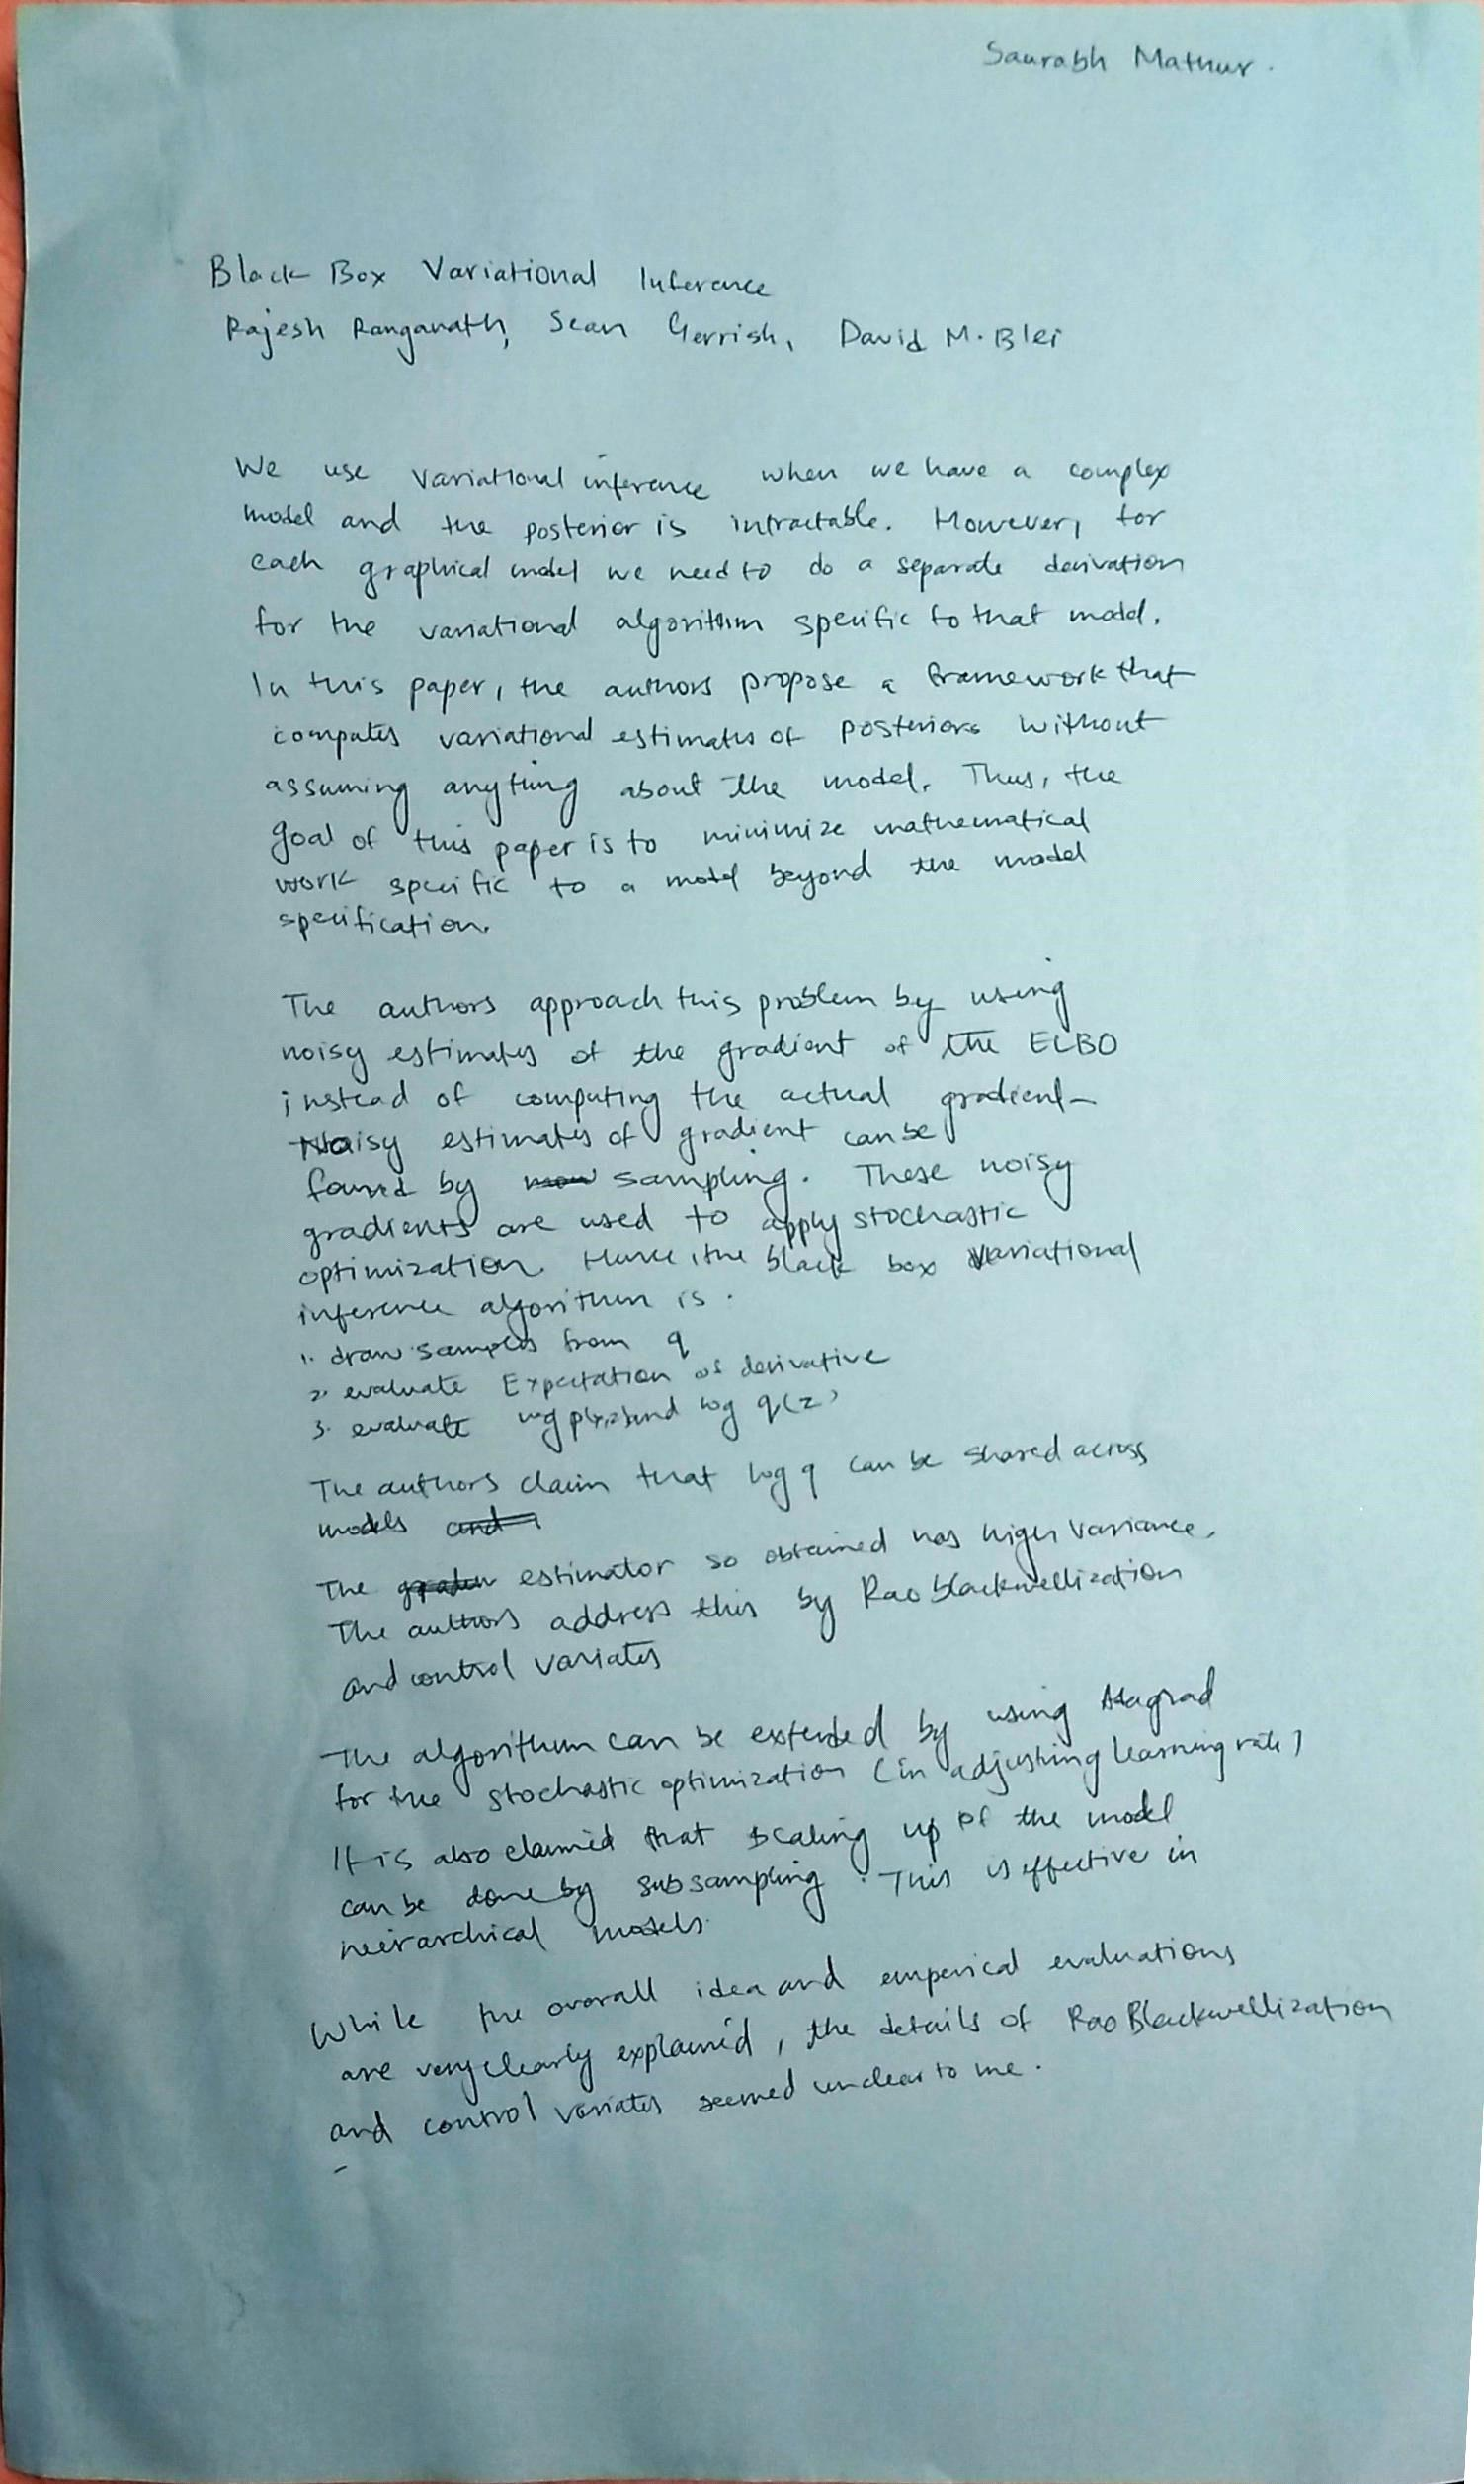 Saurabh Mathur.
Black Box Variational Inference
Rajesh Ranganath, Sean Gerrish, David M. Blei
We use variational inference when we have a complex
model and the posterior is intractable. However, for
each graphical model we need to do a separate derivation
for the variational algorithm specific to that model.
In this paper, the authors propose a framework that
computes variational estimates of posteriors without
assuming anything about the model. Thus, the
goal of this paper is to minimize mathematical
work specific to a model beyond the model
specification.
The authors approach this problem by using
noisy estimates of the gradient of the ELBO
instead of computing the actual gradient
Noisy estimates of gradient can be
found by sampling. These noisy
gradients are used to apply stochastic
optimization. Hence, the black box variational
inference algorithm is.
1. draw samples from q
2. evaluate Expectation of derivative
3. evaluate log p(x,z) and log q(z)
The authors claim that log q can be shared across
models
The estimator so obtained has high variance.
The authors address this by Rao blackwellization
and control variates
The algorithm can be extended by using Adagrad
for the stochastic optimization (in adjusting learning rate)
It is also claimed that scaling up of the model
can be done by subsampling. This is effective in
heirarchical models.
While the overall idea and emperical evaluations
are very clearly explained, the details of Rao Blackwellization
and control variates seemed unclear to me.